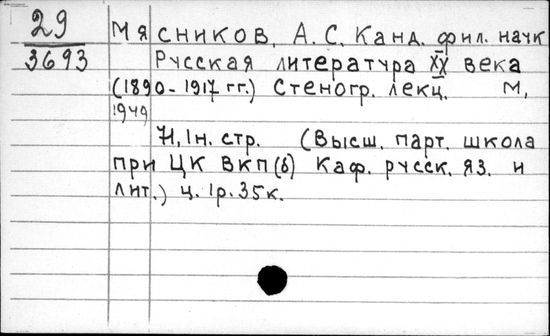 29
3693
Мясников, А. С. Канд. фил. наук
Русская литература XX века
(1890-1917 гг.) Стеногр. лекц. М,
1949
41, 1н. стр. (Высш. парт. школа
при ЦК ВКП(б) Каф. русск. яз. и
лит.) ц. 1р.35к.